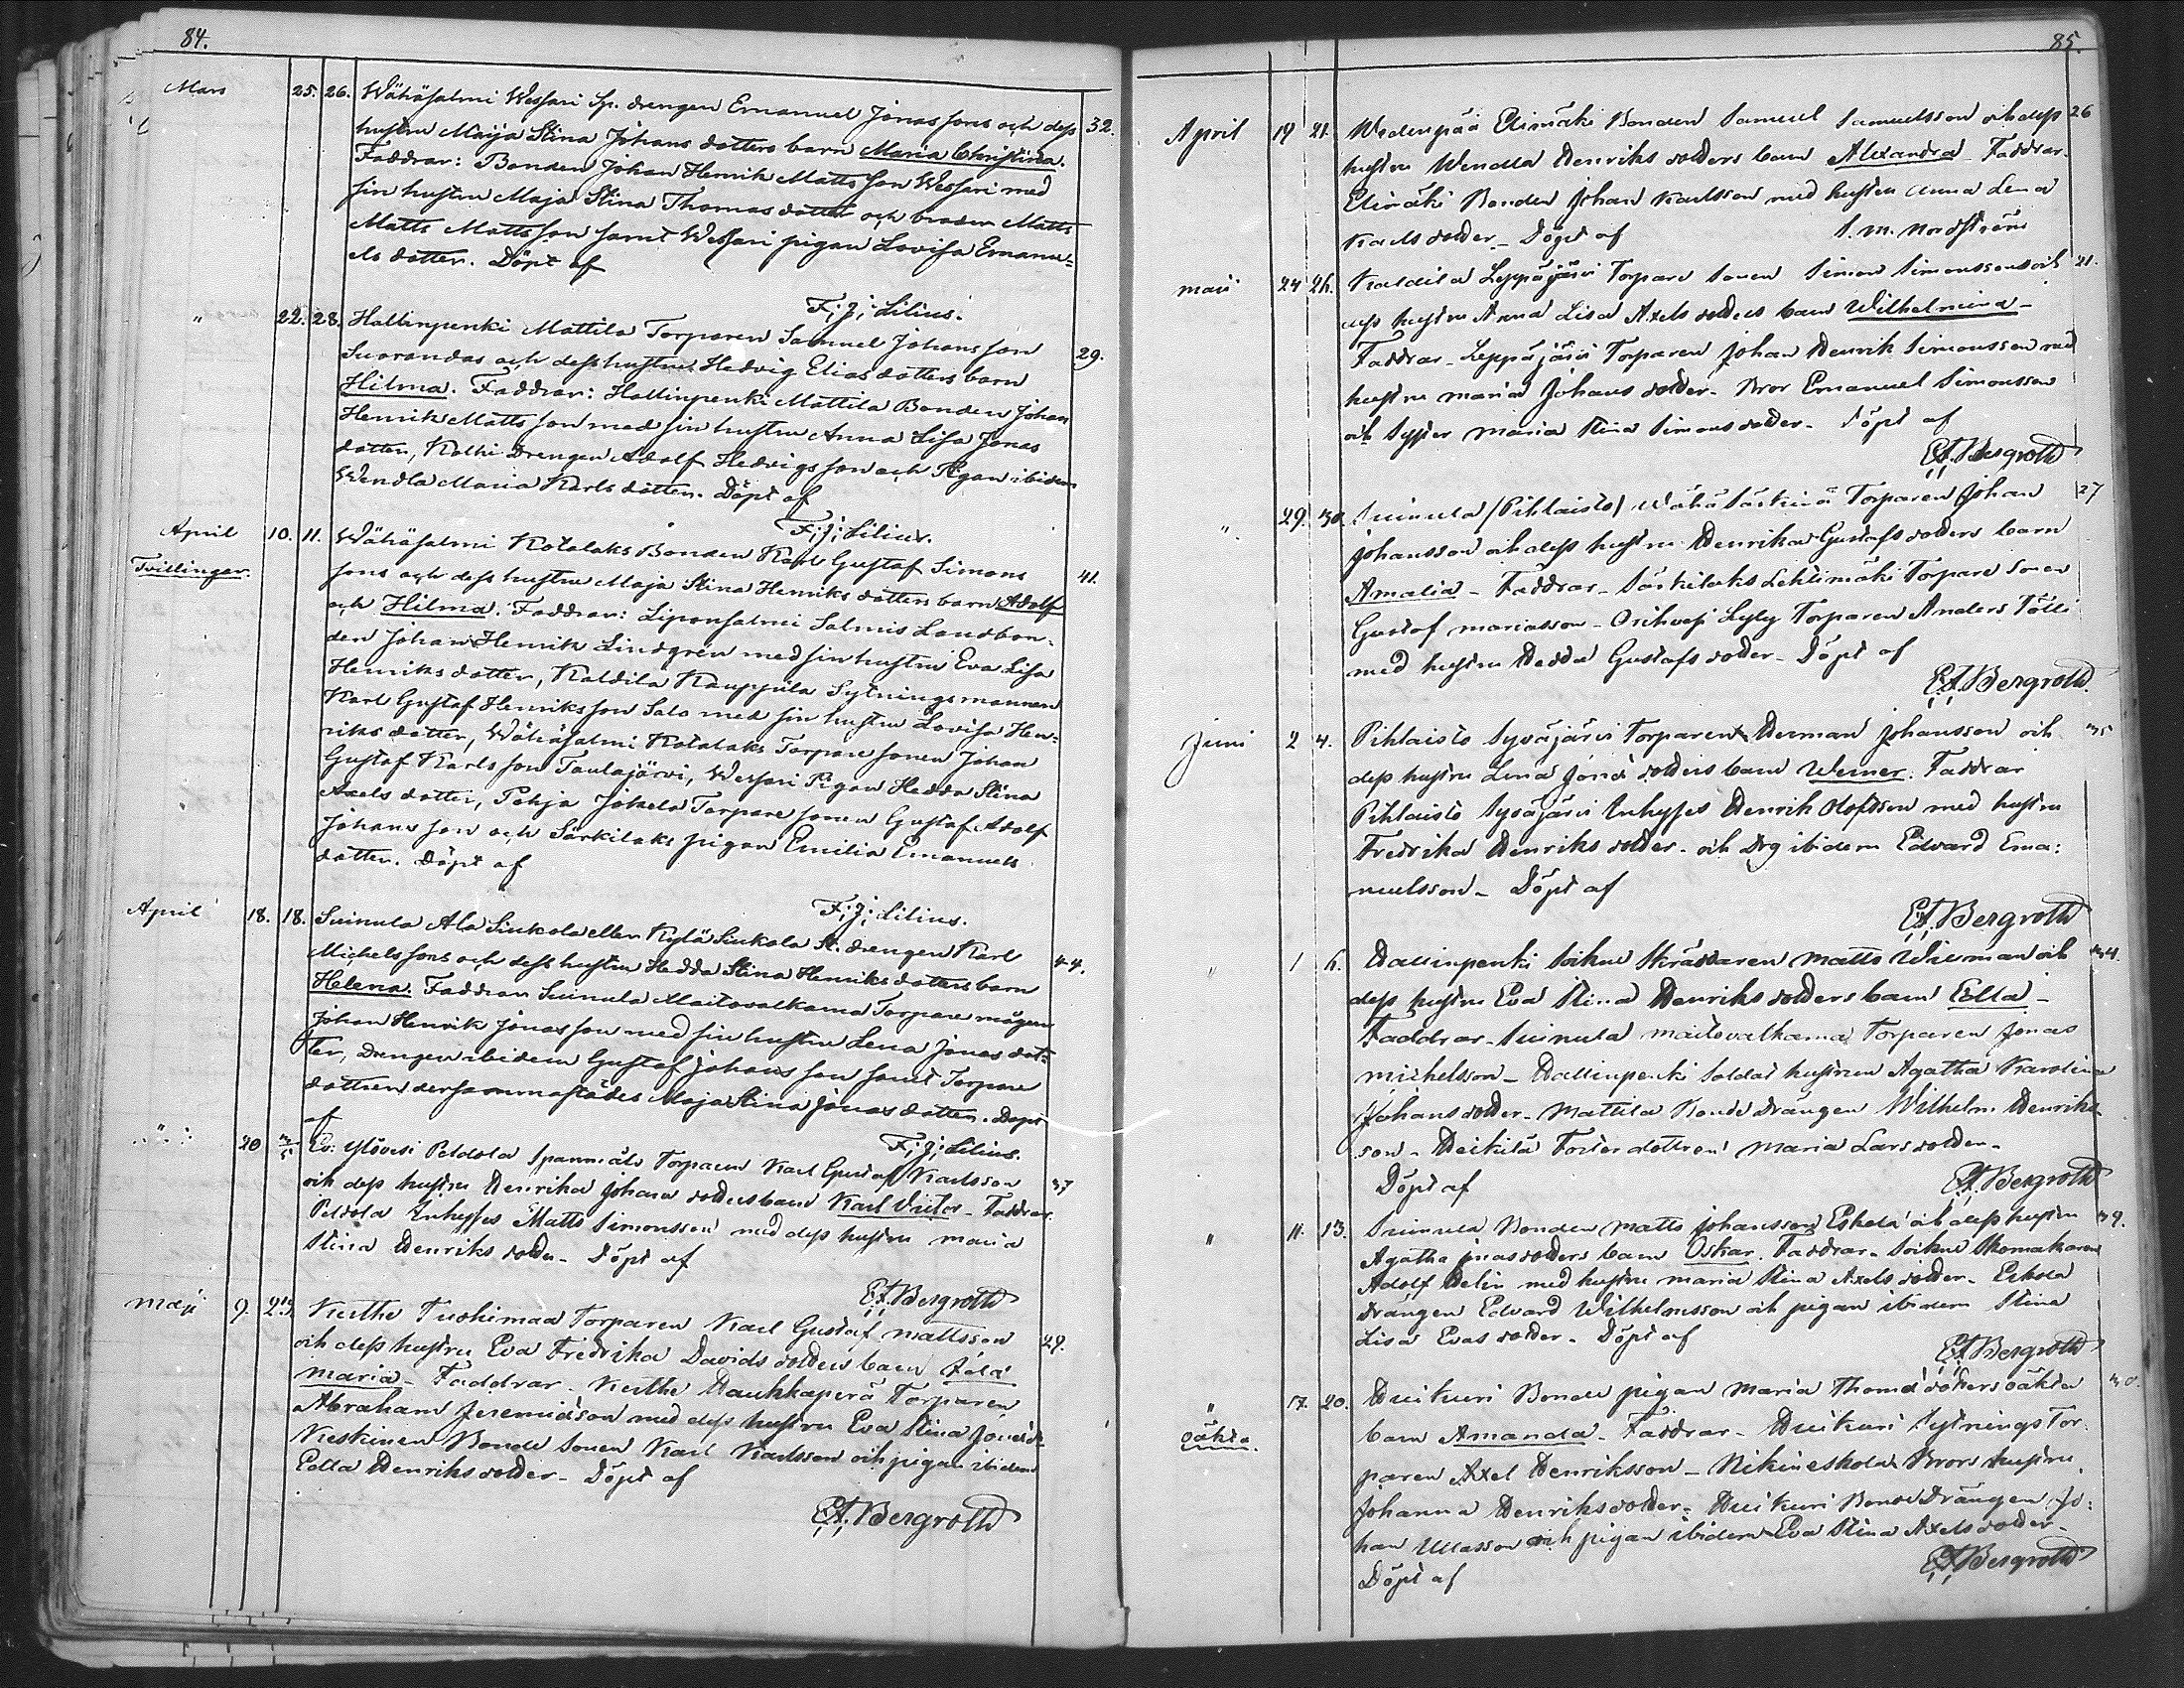 84.
Mars 25. 26. Wähäsalmi Wessari Sp. drengen Emanuel Jonas sons och dess 32.
hustru Maija Stina Johans dotters barn Maria Christina.
Faddrar: Bonden Johan Henrik Matts son Wessari med
sin hustru Maja Stina Thomas dotter och brodern Matts
Matts Matts son samt Wessari pigan Lovisa Emanu=
els dotter. Döpt af
F; J; Lilius.
" 22. 28. Hallinpenki Mattila Torparen Samuel Johans son 29.
Suorandas och dess hustrus Hedvig Elias dotters barn
Hilma. Faddrar: Hallinpenki Mattila Bonden Johan
Henrik Matts son med sin hustru Anna Lisa Jonas
dotter, Kolhi Drengen Adolf Hedvigs son och Pigan ibidem
Wendla Maria Karls dotter. Döpt af
F; J; Lilius.
April 10. 11. Wähäsalmi Kotalaks Bonden Karl Gustaf Simons 41.
Tvillingar. sons och dess hustru Maja Stina Henriks dotters barn Adolf
och Hilma. Faddrar: Liponsalmi Salmis Landbon-
den Johan Henrik Lindgrén med sin hustru Eva Lisa
Henriks dotter, Kaldila Kauppila Sytningsmannen
Karl Gustaf Henriks son Salo med sin hustru Lovisa Hen=
riks dotter, Wähäsalmi Kotalaks Torpare sonen Johan
Gustaf Karls son Taulajärvi, Wessari Pigan Hedda Stina
Axels dotter, Pohja Jokela Torpare sonen Gustaf Adolf
Johans son och Särkilaks pigan Emilia Emanuels
dotter. Döpt af
F; J; Lilius.
April 18. 18. Suinula Ala Siukola eller Kylä Siukola St. drengen Karl 44.
Michels sons och dess hustru Hedda Stina Henriks dotters barn
Helena. Faddrar Suinula Maitovalkama Torpare mågen
Johan Henrik Jonas son med sin hustru Lena Jonas dot=
ter, Drengen ibidem Gustaf Johans son samt Torpare
dottren dersammastädes Maja Stina Jonas dotter. Döpt
af
F; J; Lilius.
" 20 3/5 Ylövesi Peldola Torparen Karl Gustaf Karlsson 37
och dess hustru Henrika Johans dotters barn Karl Victor - Faddrar.
Peldola Inhyses Matts Simonsson med dess hustru Maria
Stina Henriks dotter - Döpt af
E.A. Bergroth
Maji 9. Kuthe Tuohimaa Torparen Karl Gustaf Mattsson 29.
och dess hustru Eva Fredrika Davids dotters barn Ida
Maria - Faddrar - Kuthe Haukkaperä Torparen
Abraham Jeremiason med dess hustru Eva Stina
Keskinen Bonde sonen Karl Karlsson och pigan ibidem
Edla Henriks dotter - Döpt af
E.A. Bergroth
85.
April 19 21. Wedenpää Elimäki Bonden Samuel Samuelsson och dess 26
hustru Wendla Henriks dotters barn Alexandra - Faddrar.
Elimäki Bonden Johan Karlsson med hustru Anna Lena
Karls dotter - Döpt af S. M. Nordström
Maii 24 26. Kaldila Leppäjärvi Torpare sonen Simon Simonssons och 21.
dess hustru Anna Lisa Axels dotters barn Wilhelmina -
Faddrar - Leppäjärvi Torparen Johan Henrik Simonsson med
hustru Maria Johans dotter - Bror Emanuel Simonsson
och Syster Maria Stina Simons dotter - Döpt af
E.A. Bergroth
" 29. 30. Suinula (Pihlaisto) Torparen Johan 27
Johansson och dess hustru Henrika Gustafs dotters barn
Amalia - Faddrar - Särkilaks Lehtimäki Torpare sonen
Gustaf Mariasson - Orihvesi Lyly Torparen Anders Tölli
med hustru Hedda Gustafs dotter - Döpt af
E.A. Bergroth.
Juni 2 4. Pihlaisto Syväjärvi Torparen Herman Johansson och 35
dess hustru Lena Jonas dotters barn Werner. Faddrar
Pihlaisto Syväjärvi Inhyses Henrik Olofsson med hustru
Fredrika Henriks dotter - och Drg ibidem Edvard Ema:
nuelsson - Döpt af
E.A. Bergroth
" 1 6. Hallinpenki Soikus Skräddaren Matts Widman och 34.
dess hustru Eva Stina Henriks dotters barn Edla -
Faddrar - Suinula Maitovalkama Torparen Jonas
Michelsson - Hallinpenki Soldat hustrun Agatha Karolina
Johans dotter - Mattila Bonde Drängen Wilhelm Henriks
son - Heikilä Foster dottren Maria Lars dotter -
Döpt af
E.A. Bergroth
" 11. 13. Suinula Bonden Matts Johansson Eskola och dess hustru 39.
Agatha Jonas dotters barn Oskar. Faddrar - Soikus Skomakaren
Adolf Helin med hustru Maria Stina Axels dotter - Eskola
Drängen Edvard Wilhelmsson och pigan ibidem Stina
Lisa Evas dotter - Döpt af
E.A. Bergroth
" 17. 20. Huikuri Bonde pigan Maria Thomas dotters oäkta 30.
oäkta. barn Amanda - Faddrar - Huikuri Sytnings Tor-
paren Axel Henriksson - Nikineskola Bror hustru
Johanna Henriksdotter - Huikuri Bonde Drängen Jo:
han Ullasson och pigan ibidem Eva Stina Axels dotter -
Döpt af
E.A. Bergroth